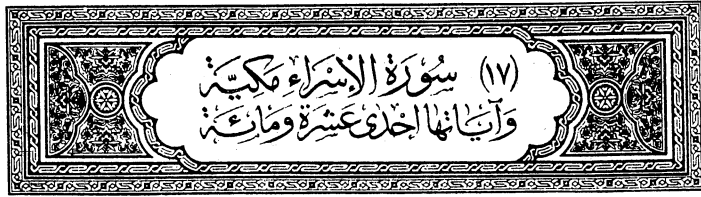 (١٧) سُورَة الإِسْرَاءِ مَكيَّة
وَآيَاتهَا احْدى عَشْرَة وَمَائِة